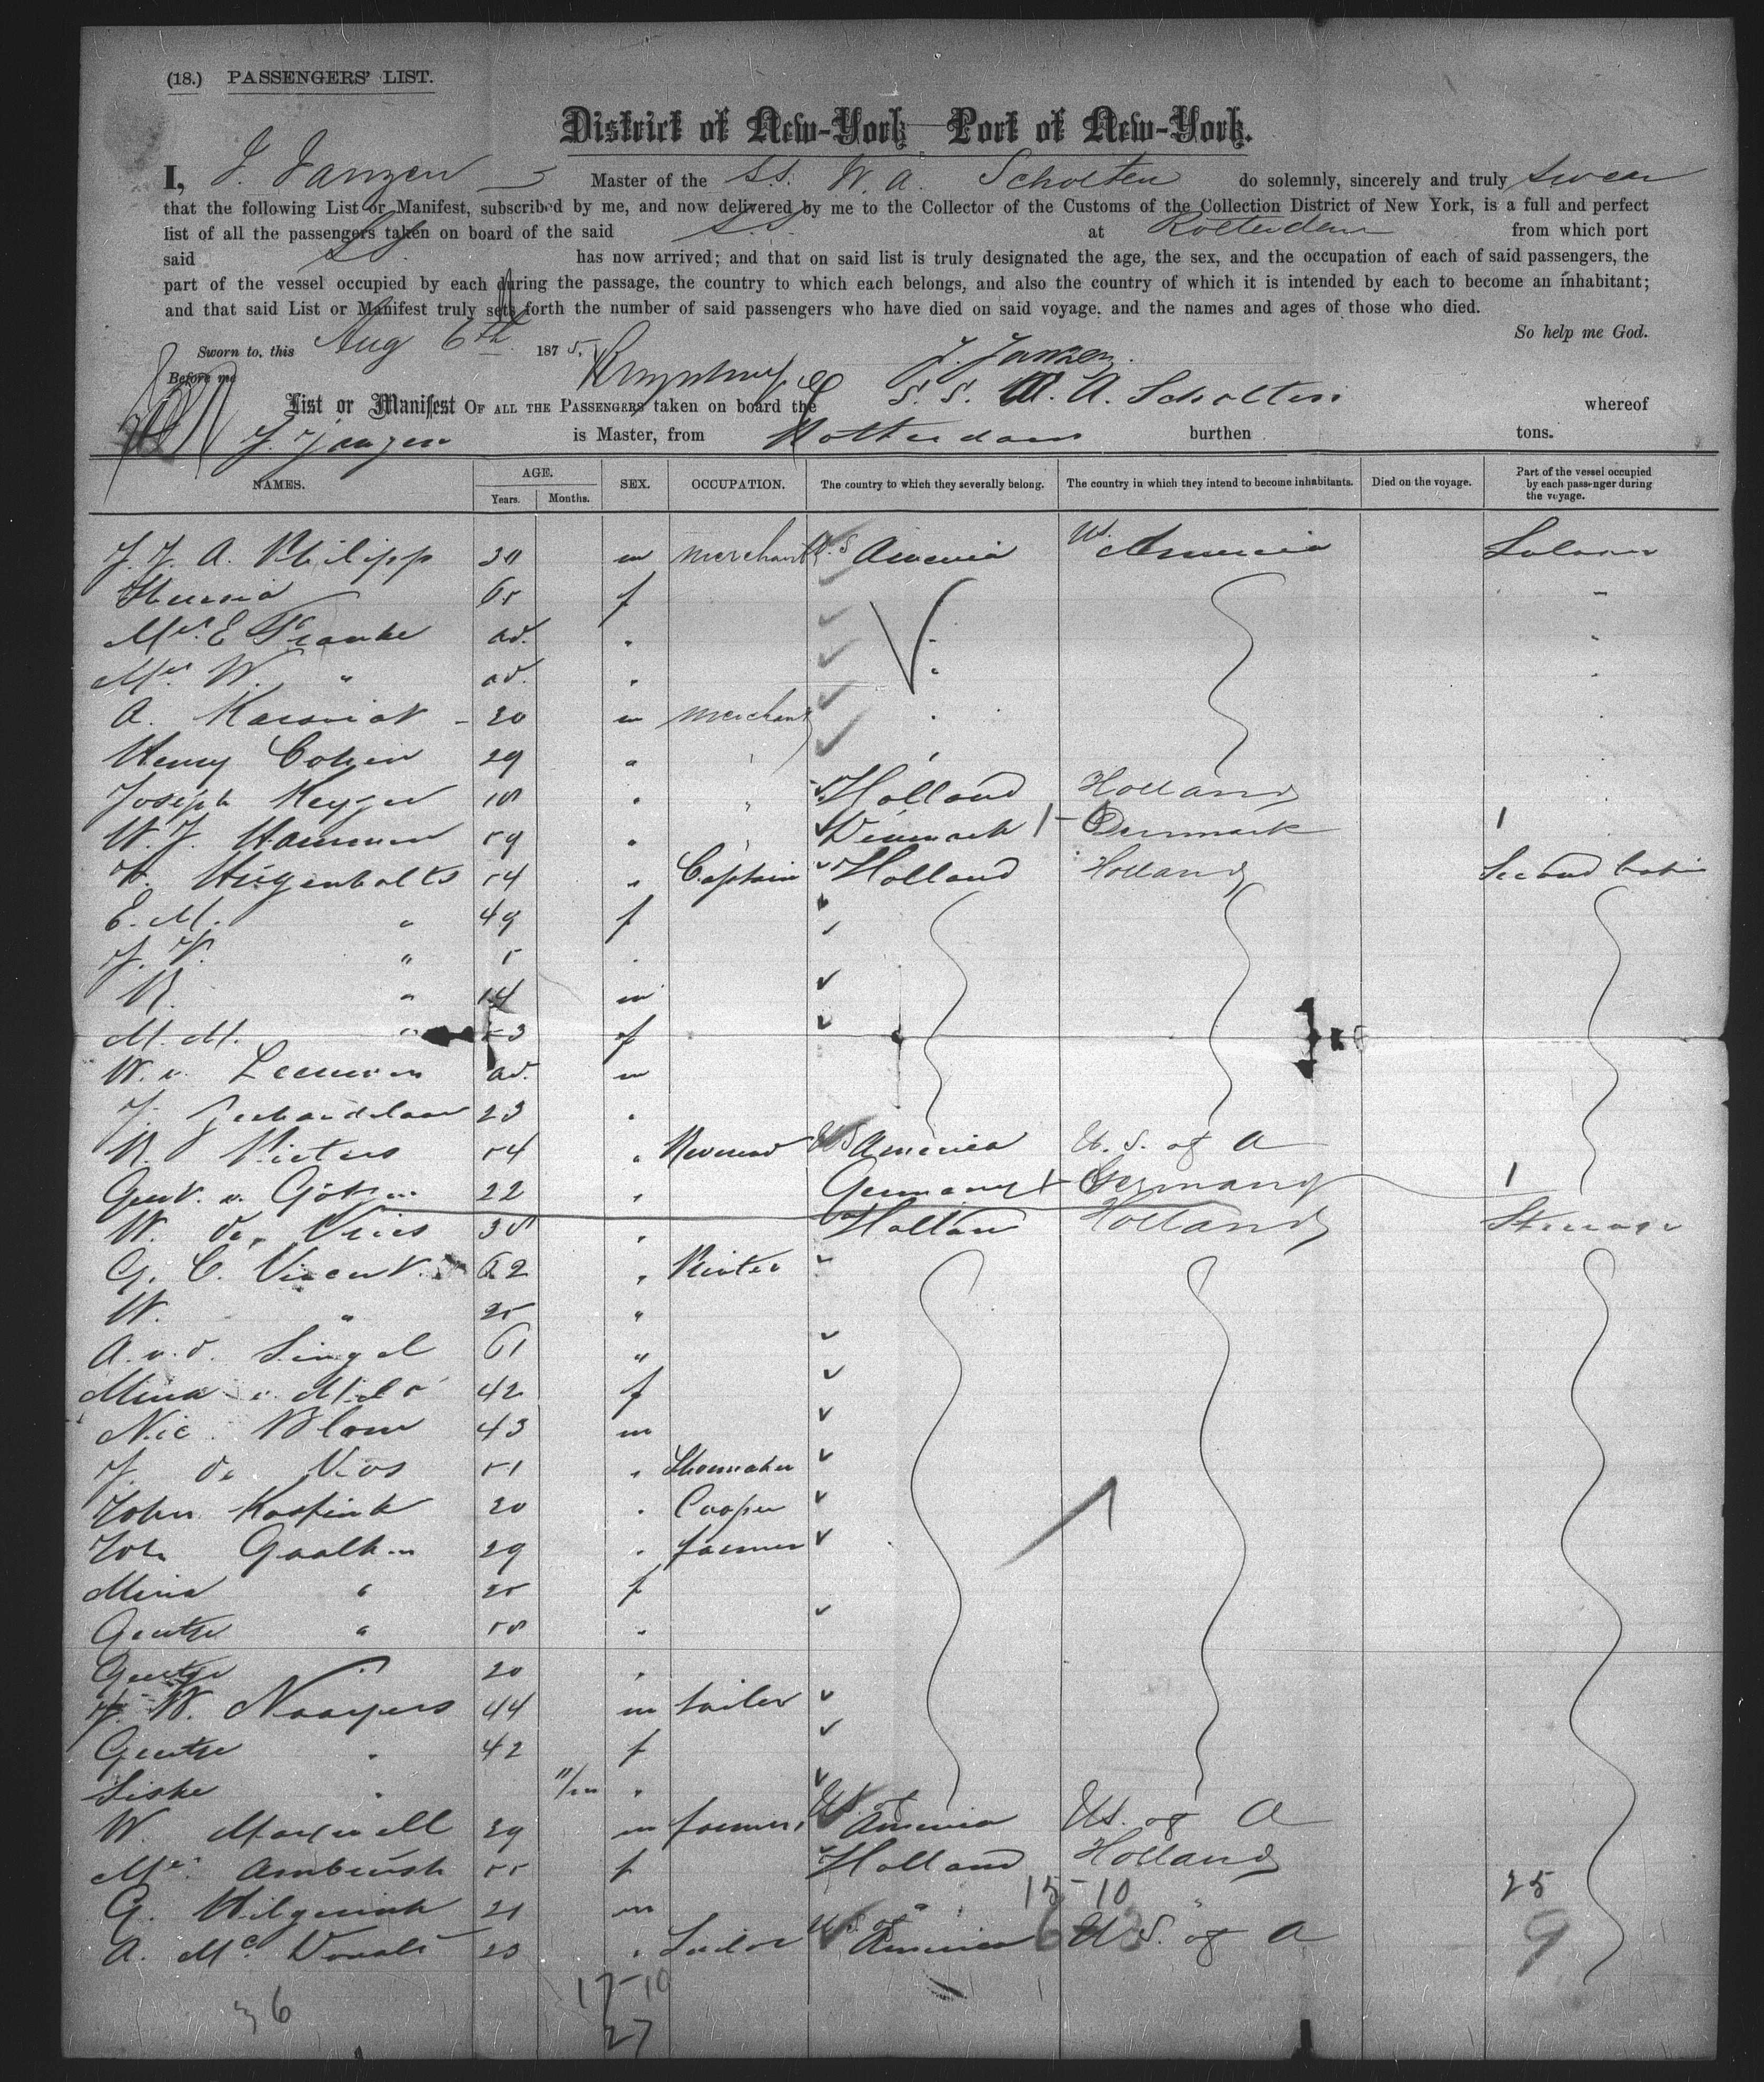 (18.) PASSENGERS' LIST.
District of New-York Port of New-York.
I, J. Janzen Master of the S.S. W. A. Scholten do solemnly, sincerely and truly swear
that the following List or Manifest, subscribed by me, and now delivered by me to the Collector of the Customs of the Collection District of New York, is a full and perfect
list of all the passengers taken on board of the said S.S. at Rotterdam from which port
said S.S. has now arrived; and that on said list is truly designated the age, the sex, and the occupation of each of said passengers, the
part of the vessel occupied by each during the passage, the country to which each belongs, and also the country of which it is intended by each to become an inhabitant;
and that said List or Manifest truly sets forth the number of said passengers who have died on said voyage, and the names and ages of those who died.
So help me God.
Sworn to, this Aug 6th 1875 J. Janzen
Before me
List or Manifest OF ALL THE PASSENGERS taken on board the S. S. W. A. Scholten whereof
J. Janzen is Master, from Rotterdam burthen tons.
NAMES. AGE. Years. Months. SEX. OCCUPATION. The country to which they severally belong. The country in which they intend to become inhabitants. Died on the voyage. Part of the vessel occupied by each passenger during the voyage.
J. J. A. Philipp m merchant U.S America US. America Saloon
f
Mrs. E Franke ad. "
Mrs. W. " ad. "
A. 20 m merchant
Henry Cohen 29 "
Joseph Keyzer 18 " Holland Holland
W. J. 59 " Denmark 1 - Denmark 1
Hugenholts 54 " Captain Holland Holland Second Cabin
E. M. " 49 f
J. " 5
" 14 m
M. M. " 53 f
W. v. Leeuwen ad. m
J. 23 "
R. Pieters 54 " Reverend US America U. S. of A
v. 22 " Germany 1 Germany 1
W. de Vries 38 " Holland Holland Steerage
G. C. Vincent 62 "
W. " 25 "
A. v. d. Singel 61 "
Mina v. 42 f
Nic. Blom 43 m
J. de Vos 51 " Shoemaker
John 20 " Cooper
Joh. 29 " farmer
Mina " 25 f
Geertje " 58 "
Geertje " 20 "
W. Naayers 44 m tailor
Geertje " 42 f
Siske " 11/m "
W. Maxwell 29 m farmer US. of America US. of A
Mrs. 55 f Holland Holland
G. 21 m " 15-10 " 25
A. McDonald 23 " U.S. of America 6 3 U S. of A 9
17-10
36
27